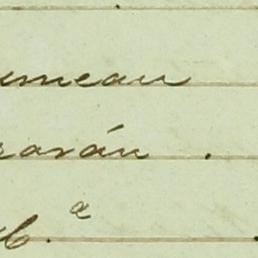 umeau
raván.
b.ª